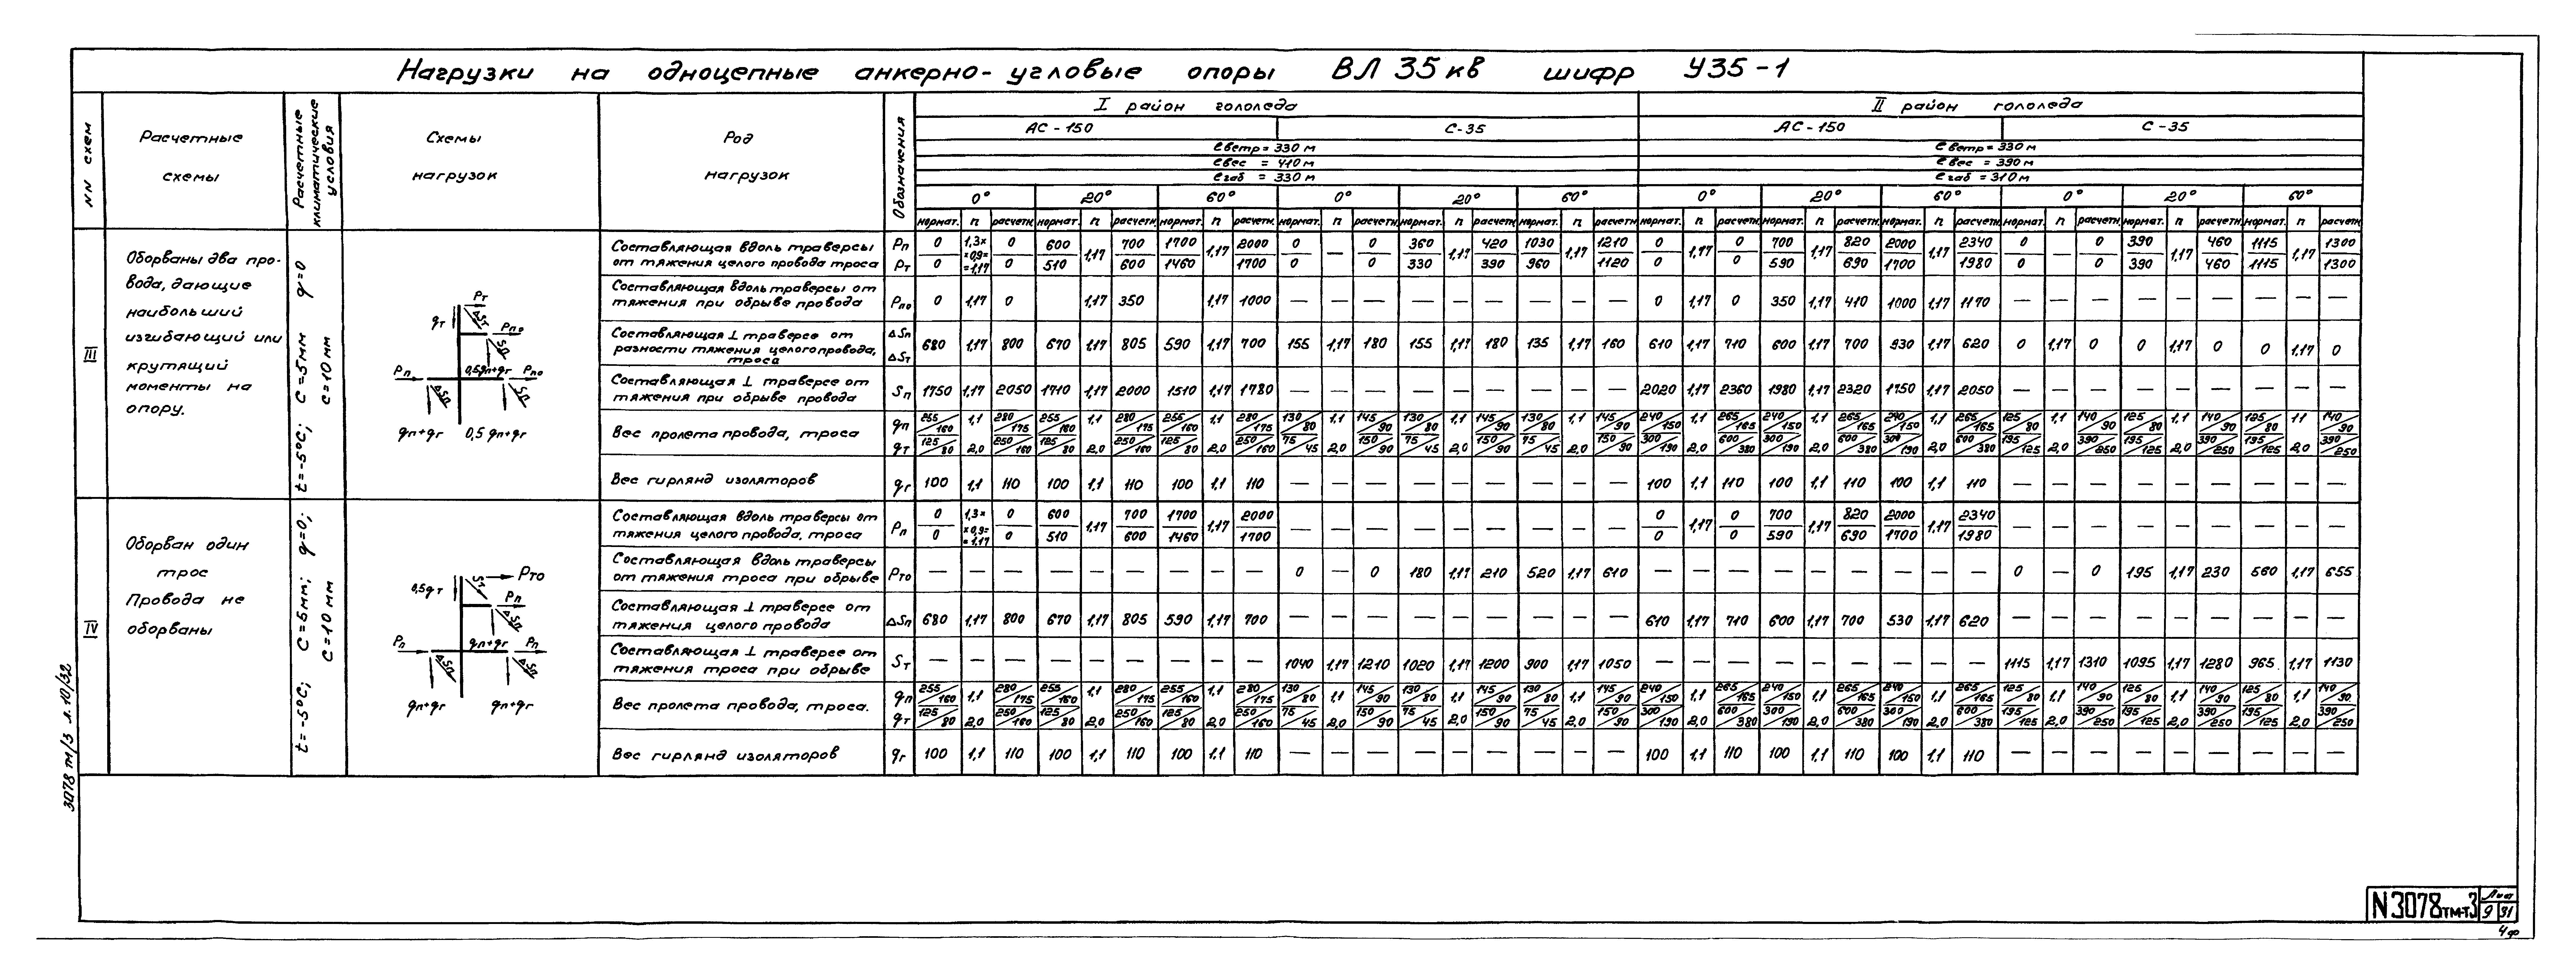 Нагрузки на одноцепные анкерно-угловые опоры ВЛ 35 кв шифр У35-1
NN схем
Расчетные схемы
Расчетные климатические условия
Схемы нагрузок
Род нагрузок
Обозначения
I район гололеда
II район гололеда
АС-150
С-35
АС-150
С-35
ℓветр=330 м
ℓвес = 410 м
ℓгаб = 330 м
ℓветр=330 м
ℓвес = 390 м
ℓгаб = 310 м
0° 20° 60° 0° 20° 60° 0° 20° 60° 0° 20° 60°
нормат. n расчетн. нормат. n расчетн. нормат. n расчетн. нормат. n расчетн. нормат. n расчетн. нормат. n расчетн. нормат. n расчетн. нормат. n расчетн. нормат. n расчетн. нормат. n расчетн. нормат. n расчетн. нормат. n расчетн.
III
Оборваны два про-
вода, дающие
наибольший
изгибающий или
крутящий
моменты на
опору.
t=-5°C; C=5мм q=0
c=10 мм
Pт
qт ΔSт
Pпо
Sп
Pп 0,5qп+qг Pпо
ΔSп Sп
qп+qг 0,5qп+qг
Составляющая вдоль траверсы
от тяжения целого провода троса
Pп 0 1,3× 0 600 700 1700 2000 0 0 360 420 1030 1210 0 0 700 820 2000 2340 0 0 390 460 1115 1300
×0,9= 1,17 1,17 — 1,17 1,17 1,17 1,17 1,17 1,17 1,17
Pт 0 =1,17 0 510 600 1460 1700 0 0 330 390 960 1120 0 0 590 690 1700 1980 0 0 390 460 1115 1300
Составляющая вдоль траверсы от
тяжения при обрыве провода
Pпо 0 1,17 0 1,17 350 1,17 1000 — — — — — — — — — 0 1,17 0 350 1,17 410 1000 1,17 1170 — — — — — — — — —
Составляющая ⊥ траверсе от
разности тяжения целого провода,
троса
ΔSп
ΔSт
680 1,17 800 670 1,17 805 590 1,17 700 155 1,17 180 155 1,17 180 135 1,17 160 610 1,17 710 600 1,17 700 530 1,17 620 0 1,17 0 0 1,17 0 0 1,17 0
Составляющая ⊥ траверсе от
тяжения при обрыве провода
Sп 1750 1,17 2050 1710 1,17 2000 1510 1,17 1780 — — — — — — — — — 2020 1,17 2360 1980 1,17 2320 1750 1,17 2050 — — — — — — — — —
Вес пролета провода, троса
qп 255/160 1,1 280/175 255/160 1,1 280/175 255/160 1,1 280/175 130/80 1,1 145/90 130/80 1,1 145/90 130/80 1,1 145/90 240/150 1,1 265/165 240/150 1,1 265/165 240/150 1,1 265/165 125/80 1,1 140/90 125/80 1,1 140/90 125/80 1,1 140/90
qт 125/80 2,0 250/160 125/80 2,0 250/160 125/80 2,0 250/160 75/45 2,0 150/90 75/45 2,0 150/90 75/45 2,0 150/90 300/190 2,0 600/380 300/190 2,0 600/380 300/190 2,0 600/380 195/125 2,0 390/250 195/125 2,0 390/250 195/125 2,0 390/250
Вес гирлянд изоляторов
qг 100 1,1 110 100 1,1 110 100 1,1 110 — — — — — — — — — 100 1,1 110 100 1,1 110 100 1,1 110 — — — — — — — — —
IV
Оборван один
трос
Провода не
оборваны
t=-5°C; C=5мм; q=0;
c=10 мм
0,5qт Sт Pто
Pп
ΔSп
Pп qп+qг Pп
ΔSп ΔSп
qп+qг qп+qг
Составляющая вдоль траверсы от
тяжения целого провода, троса
Pп
0 1,3× 0 600 700 1700 2000 0 0 700 820 2000 2340
×0,9= 1,17 1,17 — — — — — — — — — 1,17 1,17 1,17 — — — — — — — — —
0 =1,17 0 510 600 1460 1700 0 0 590 690 1700 1980
Составляющая вдоль траверсы
от тяжения троса при обрыве
Pто — — — — — — — — — 0 — 0 180 1,17 210 520 1,17 610 — — — — — — — — — 0 — 0 195 1,17 230 560 1,17 655
Составляющая ⊥ траверсе от
тяжения целого провода
ΔSп 680 1,17 800 670 1,17 805 590 1,17 700 — — — — — — — — — 610 1,17 710 600 1,17 700 530 1,17 620 — — — — — — — — —
Составляющая ⊥ траверсе от
тяжения троса при обрыве
Sт — — — — — — — — — 1040 1,17 1210 1020 1,17 1200 900 1,17 1050 — — — — — — — — — 1115 1,17 1310 1095 1,17 1280 965 1,17 1130
Вес пролета провода, троса.
qп 255/160 1,1 280/175 255/160 1,1 280/175 255/160 1,1 280/175 130/80 1,1 145/90 130/80 1,1 145/90 130/80 1,1 145/90 240/150 1,1 265/165 240/150 1,1 265/165 240/150 1,1 265/165 125/80 1,1 140/90 125/80 1,1 140/90 125/80 1,1 140/90
qт 125/80 2,0 250/160 125/80 2,0 250/160 125/80 2,0 250/160 75/45 2,0 150/90 75/45 2,0 150/90 75/45 2,0 150/90 300/190 2,0 600/380 300/190 2,0 600/380 300/190 2,0 600/380 195/125 2,0 390/250 195/125 2,0 390/250 195/125 2,0 390/250
Вес гирлянд изоляторов
qг 100 1,1 110 100 1,1 110 100 1,1 110 — — — — — — — — — 100 1,1 110 100 1,1 110 100 1,1 110 — — — — — — — — —
3078 тм/3 л. 10/32
N3078тм-т3
Лист
9 31